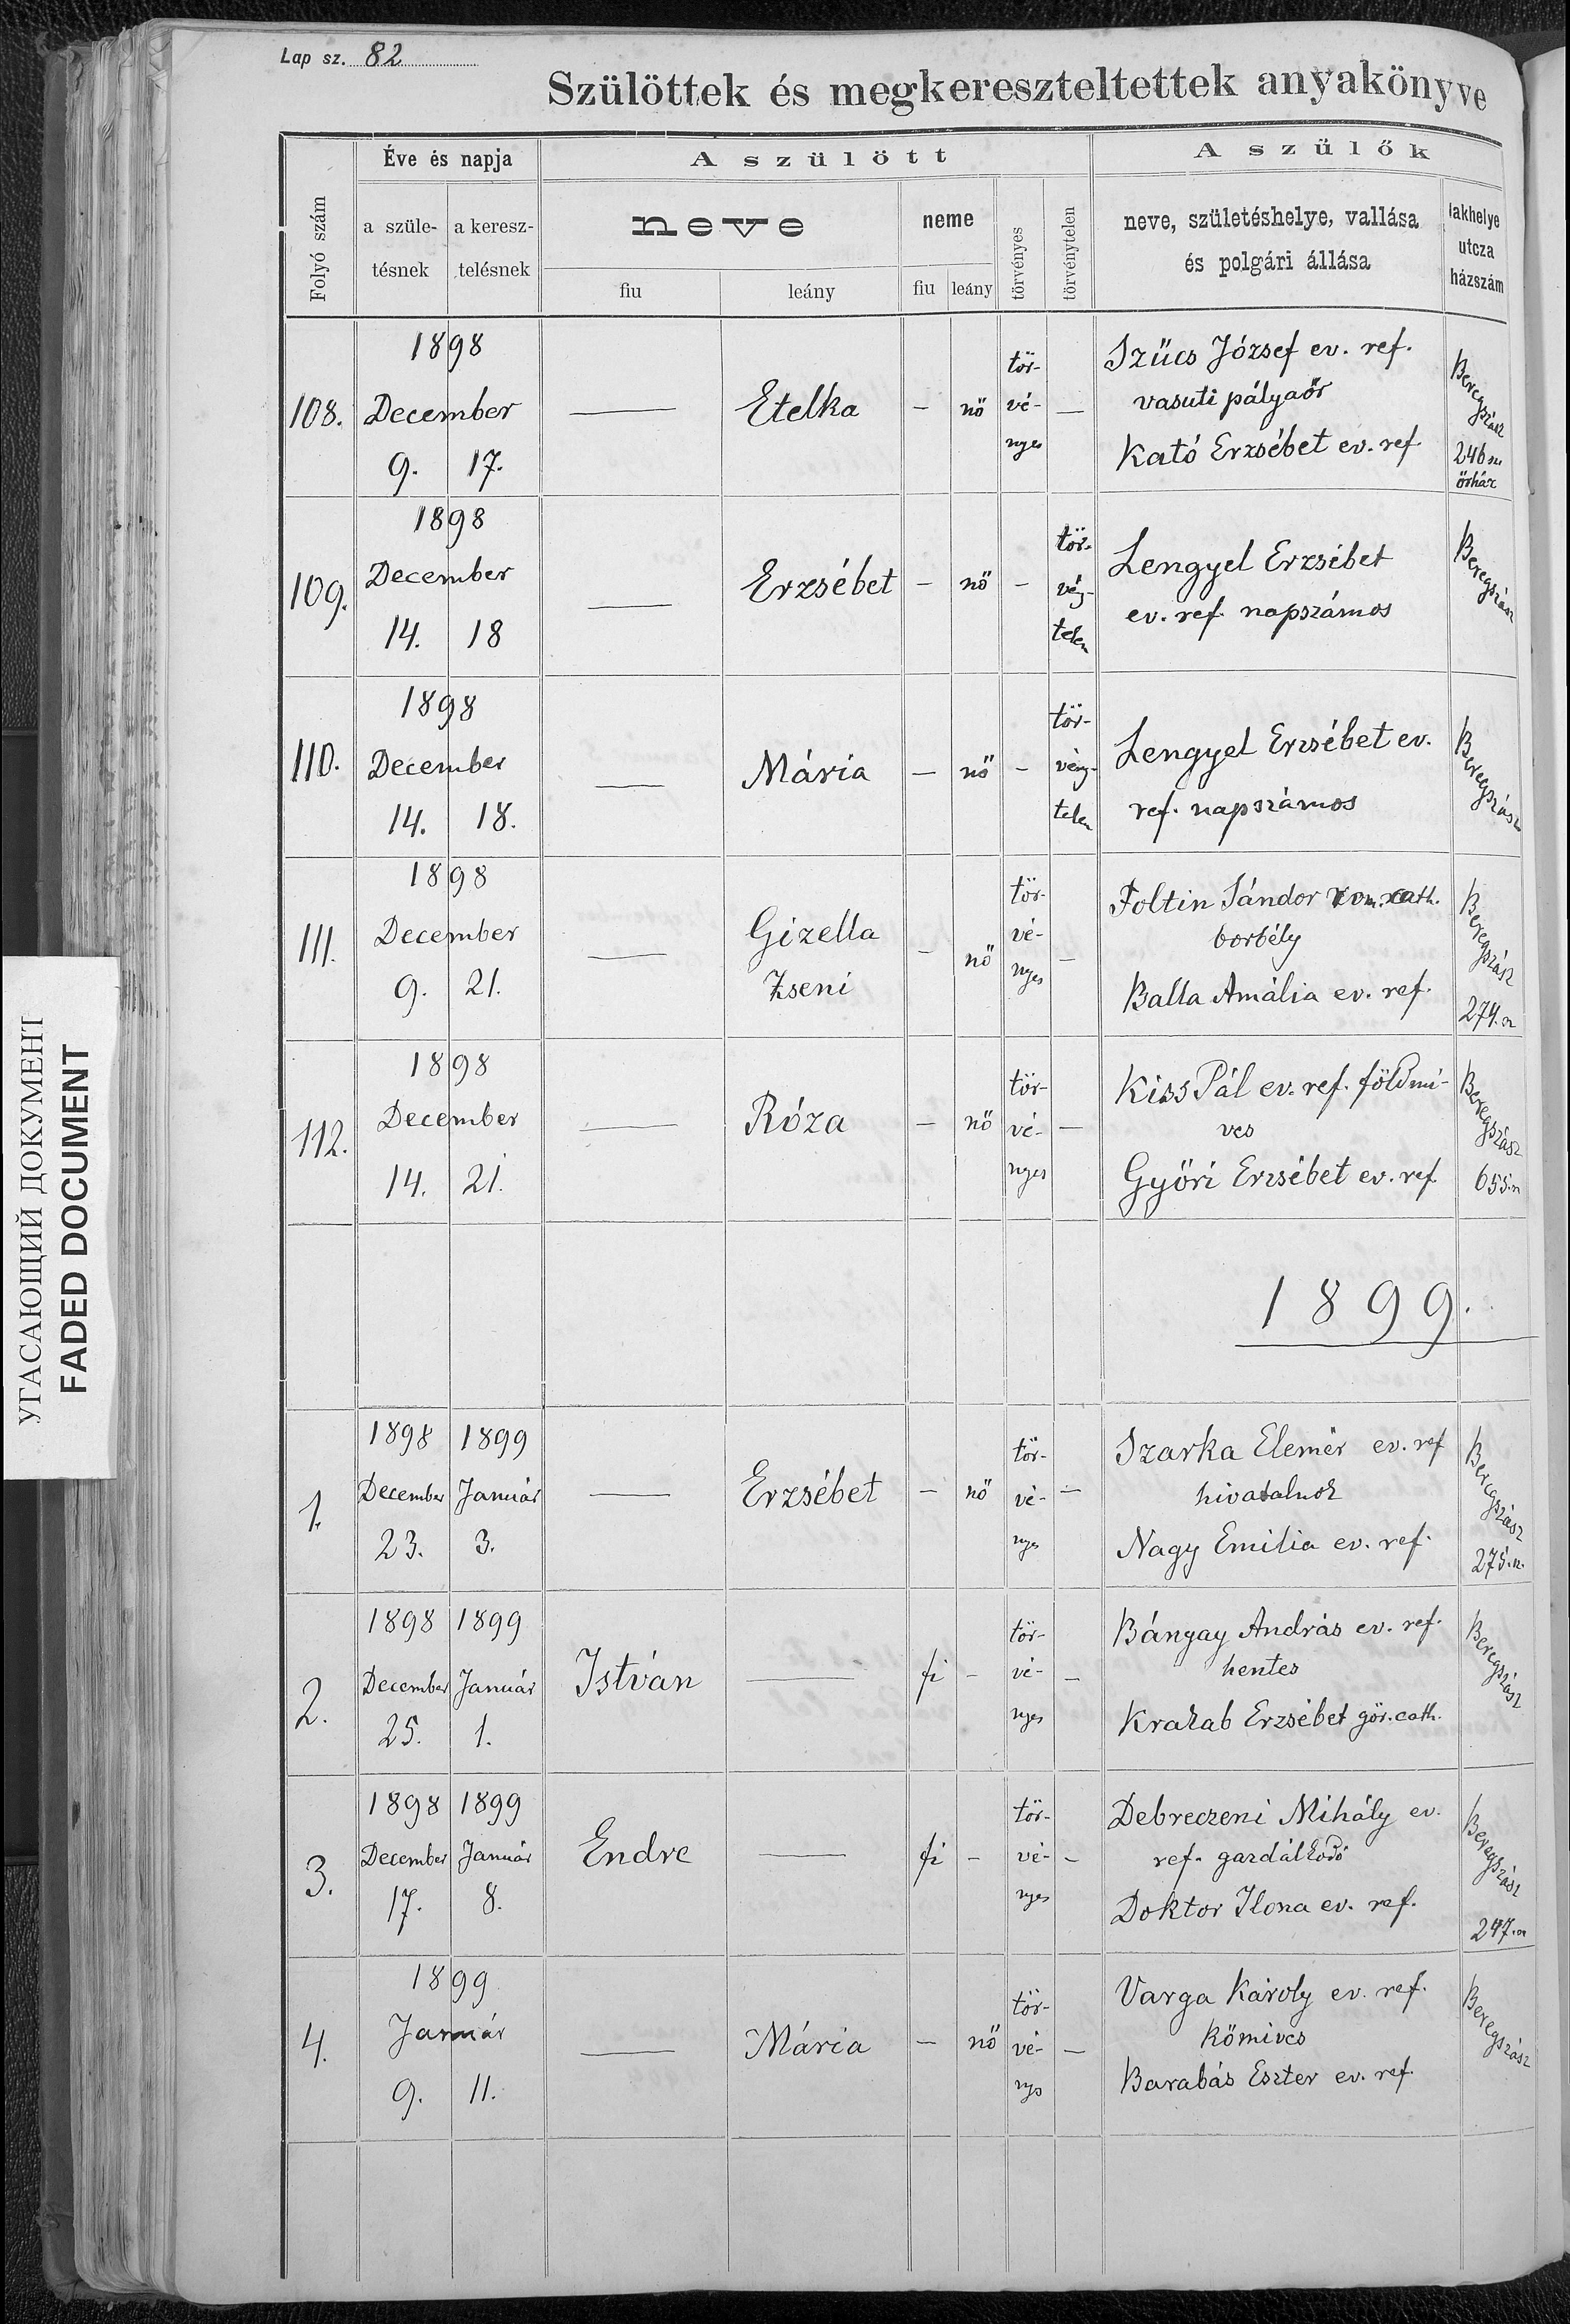 Lap sz. 82
Szülöttek és megkereszteltettek anyakönyve
Folyó szám
Éve és napja
a szüle-
tésnek
a keresz-
telésnek
A szülött
neve
fiu
leány
neme
fiu
leány
törvényes
törvénytelen
A szülők
neve, születéshelye, vallása
és polgári állása
lakhelye
utcza
házszám
108.
1898
December
9. 17.
—
Etelka
—
nő
tör-
vé-
nyes
—
Szűcs József ev. ref.
vasuti pályaőr
Kató Erzsébet ev. ref
Beregszász
246 sz.
őrház
109.
1898
December
14. 18
—
Erzsébet
—
nő
—
tör-
vény-
telen
Lengyel Erzsébet
ev. ref. napszámos
Beregszász
110.
1898
December
14. 18.
—
Mária
—
nő
—
tör-
vény-
telen
Lengyel Erzsébet ev.
ref. napszámos
Beregszász
111.
1898
December
9. 21.
—
Gizella
Zseni
—
nő
tör-
vé-
nyes
—
Foltin Sándor rom. cath.
borbély
Balla Amália ev. ref.
Beregszász
274. sz
112.
1898
December
14. 21.
—
Róza
—
nő
tör-
vé-
nyes
—
Kiss Pál ev. ref. földmi-
ves
Győri Erzsébet ev. ref.
Beregszász
655. sz
1899.
1.
1898 1899
December Január
23. 3.
—
Erzsébet
—
nő
tör-
vé-
nyes
—
Szarka Elemér ev. ref
hivatalnok
Nagy Emilia ev. ref.
Beregszász
275. sz.
2.
1898 1899
December Január
25. 1.
István
—
fi
—
tör-
vé-
nyes
—
Bányay András ev. ref.
hentes
Krakab Erzsébet gör. cath.
Beregszász
3.
1898 1899
December Január
17. 8.
Endre
—
fi
—
tör-
vé-
nyes
—
Debreczeni Mihály ev.
ref. gazdálkodó
Doktor Ilona ev. ref.
Beregszász
247. sz
4.
1899
Január
9. 11.
—
Mária
—
nő
tör-
vé-
nys
—
Varga Károly ev. ref.
kőmives
Barabás Eszter ev. ref.
Beregszász
УГАСАЮЩИЙ ДОКУМЕНТ
FADED DOCUMENT